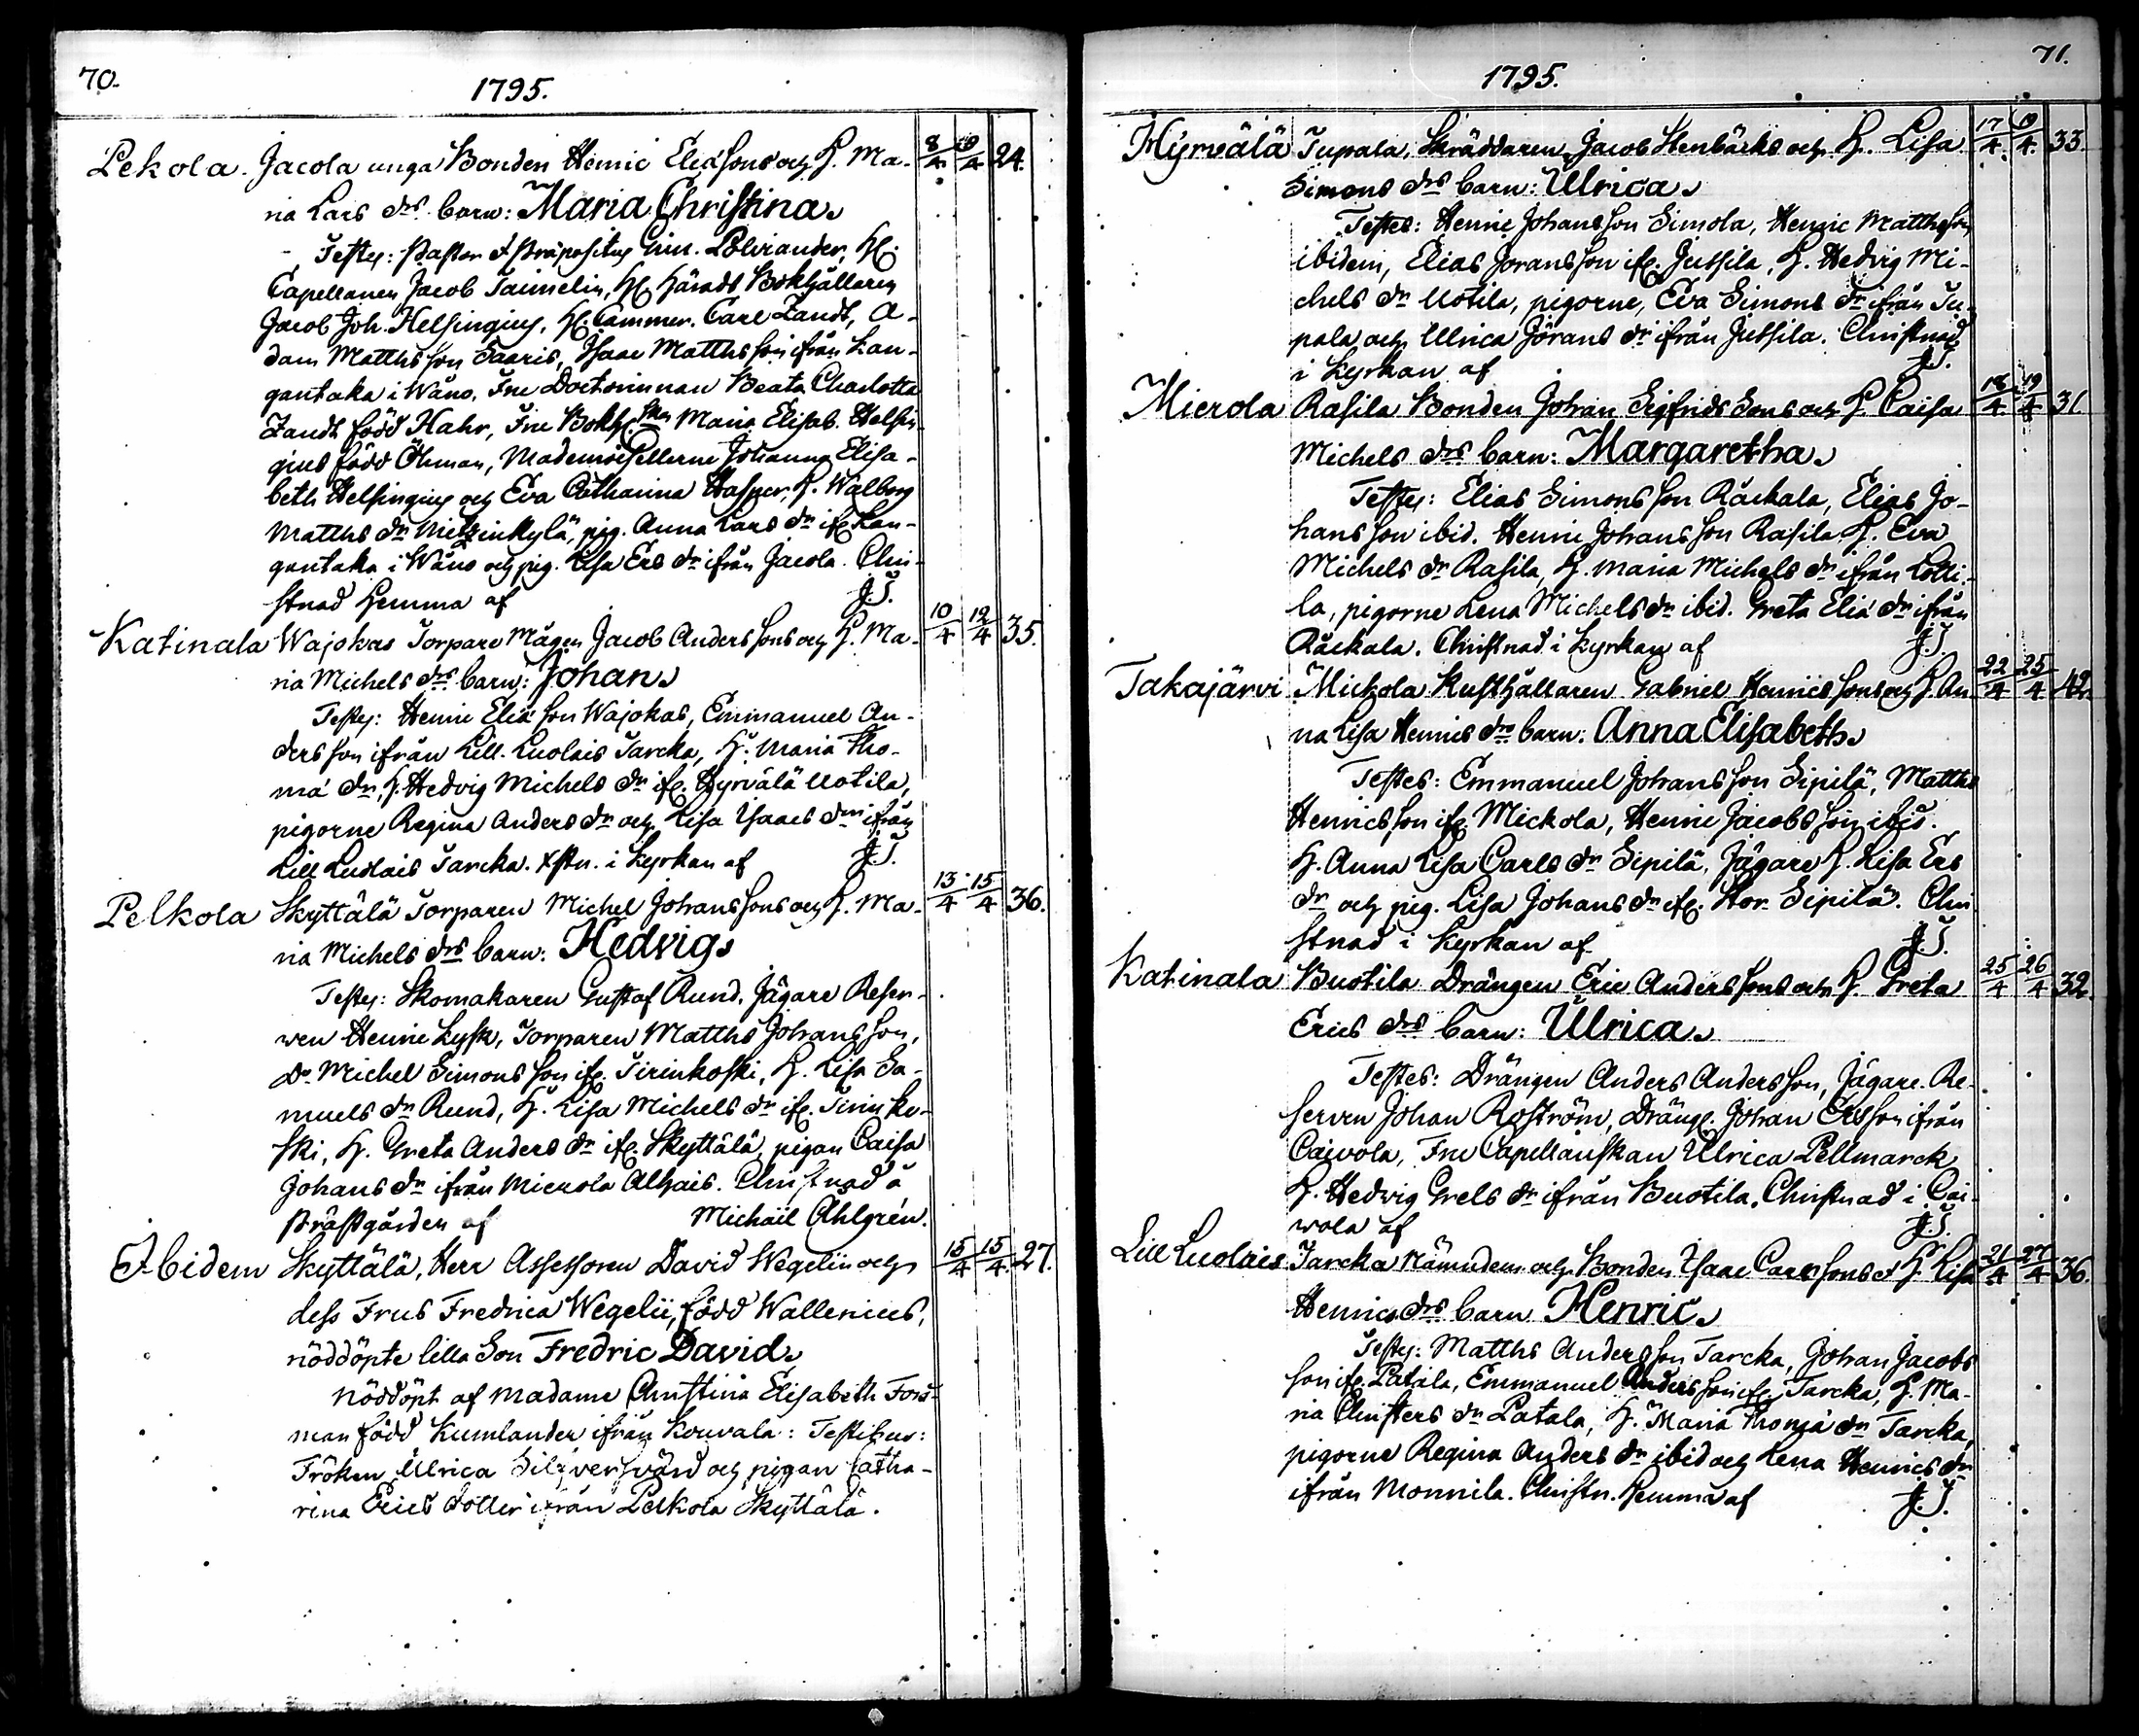 70.
1795.
Pekola. Jacola unga Bonden Henric Eliæ Sons och H. Ma- 8/4 10/4 24.
ria Lars drs barn: Maria Christina.
Testes: Pastor & Præpositus Sim. Polviander, H:
Capellanen Jacob Taumelin, H: Härads Bokhållaren
Jacob Joh. Helsingius, H: Cammer. Carl Zandt, A-
dam Matths son Saaris, Isaac Matths son ifrån Lan-
gantaka i Wåno, Fru Doctorinnan Beata Charlotta
Zandt född Hahr, Fru Bokh:skan Maria Elisab. Helsin-
gius född Öhman, Mademoisellerne Johanna Elisa-
beth Helsingius och Eva Catharina H. Walborg
Matths dr pig. Anna Lars dr ifr. Lan-
gantaka i Wåno och pig. Lisa Ers dr ifrån Jacola. Chri-
stnad hemma af J.T.
Katinala Wajokas Torpare Mågen Jacob Anders Sons och H. Ma- 10/4 12/4 35.
ria Michels drs barn: Johan.
Testes: Henric Eliæ Son Wajokas, Emmanuel An-
ders son ifrån Lill. Luolais Tarcka, H. Maria Tho-
mæ dr, H. Hedvig Michels dr ifr. Hyrvälä Uotila,
pigorne Regina Anders dr och Lisa Isaacs dr ifrån
Lill Luolais Tarcka. Xstn. i Kyrkan af J.T.
Pelkola Skyttälä Torparen Michel Johans Sons och H. Ma- 13/4 15/4 36.
ria Michels drs barn: Hedvig.
Testes: Skomakaren Gustaf Rund, Jägare Reser-
ven Henric Lysk, Torparen Matths Johans son,
Do Michel Simons son ifr. Tirinkoski, H. Lisa Sa-
muels dr Rund, H. Lisa Michels dr ifr. Tirinko-
ski, H. Greta Anders dr ifr. Skyttälä, pigan Caisa
Johans dr ifrån Mierola Alhais. Christnad å
Prästgården af Michaël Ahlgrén.
Ibidem Skyttälä, Herr Assessoren David Wegelii och 15/4 15/4 27.
dess Frus Fredrica Wegelii, född Wallenius,
nöddöpte lilla Son Fredric David.
Nöddöpt af Madame Christina Elisabeth Fors-
man född Kumlander ifrån Kouvala: Testibus:
Fröken Ulrica Silfversvärd och pigan Catha-
rina Erics dotter ifrån Pelkola Skyttälä.
71.
1795.
Hyrvälä Tupala, Skräddaren Jacob Stenbäcks och H. Lisa 17/4 19/4 33.
Simons drs barn: Ulrica.
Testes: Henric Johans son Simola, Henric Matths son
ibidem, Elias Jorans son ifr. Jussila, H. Hedvig Mi-
chels dr Uotila, pigorne, Eva Simons dr ifrån Tu-
pala och Ulrica Jörans dr ifrån Jussila. Christnad
i Kyrkan af J.T.
Mierola Rasila Bonden Johan Sigfrids Sons och H. Caisa 18/4 19/4 31
Michels drs barn: Margaretha.
Testes: Elias Simons son Räckala, Elias Jo-
hans son ibid. Henric Johans son Rasila, H. Eva
Michels dr Rasila, H. Maria Michels dr ifrån Lolli-
la, pigorne Lena Michels dr ibid. Greta Eliæ dr ifrån
Räckala. Christnad i Kyrkan af J.T.
Takajärvi Mickola Rusthållaren Gabriel Henrics Sons och H. An- 22/4 25/4 42.
na Lisa Henrics drs barn: Anna Elisabeth.
Testes: Emmanuel Johans son Sipilä, Matths
Henrics son ifr. Mickola, Henric Jacobs son ibid.
H. Anna Lisa Carls dr Sipilä, Jägare H. Lisa Ers
dr och pig. Lisa Johans dr ifr. Stor Sipilä. Chri-
stnad i Kyrkan af J.T.
Katinala Buotila Drängen Eric Anders Sons och H. Greta 25/4 26/4 32.
Erics drs barn: Ulrica.
Testes: Drängen Anders Anders son, Jägare Re-
serven Johan Roström, Dräng. Johan Ersson ifrån
Caivola, Fru Capellanskan Ulrica Pellmarck
H. Hedvig Grels dr ifrån Buotila. Christnad i Cai-
vola af J.T.
Lill Luolais Tarcka Nämndem. och Bonden Isaac Carls Sons & H. Lisa 21/4 27/4 36.
Henrics drs barn Henric.
Testes: Matths Anders son Tarcka, Johan Jacobs
son ifr. Patala, Emmanuel Anders son ifr. Tarcka, H. Ma-
ria Christers dr Patala, H. Maria Thomæ dr Tarcka,
pigorne Regina Anders dr ibid och Lena Henrics dr
ifrån Monnila. Christn. hemma af J.T.